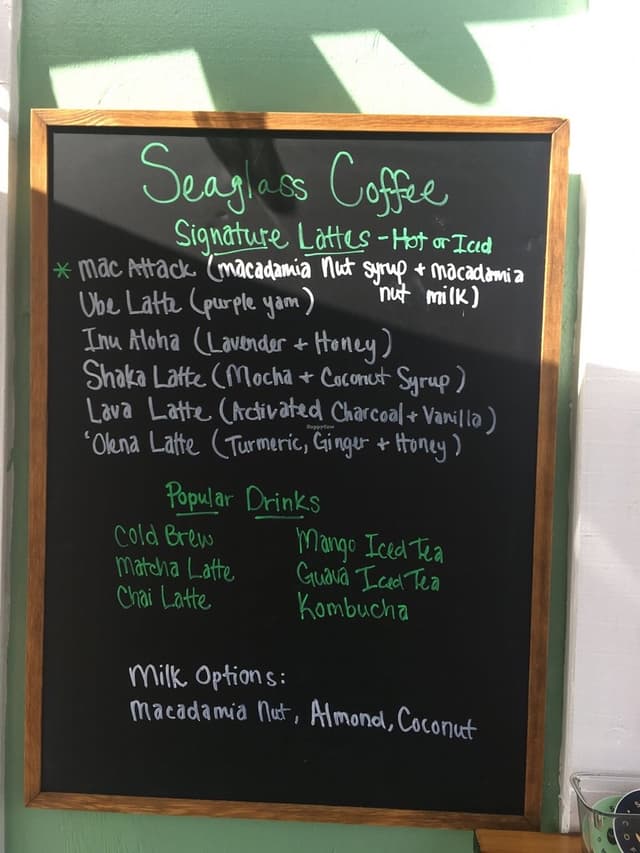 Seaglass Coffee
Signature Lattes - Hot or Iced
* Mac Attack (macadamia nut syrup + macadamia
nut milk)
Ube Latte (purple yam)
Inu Aloha (Lavender + Honey)
Shaka Latte (Mocha + Coconut Syrup)
Lava Latte (Activated Charcoal + Vanilla)
'Olena Latte (Turmeric, Ginger + Honey)
Popular Drinks
Cold Brew
Matcha Latte
Chai Latte
Mango Iced Tea
Guava Iced Tea
Kombucha
Milk Options:
Macadamia Nut, Almond, Coconut